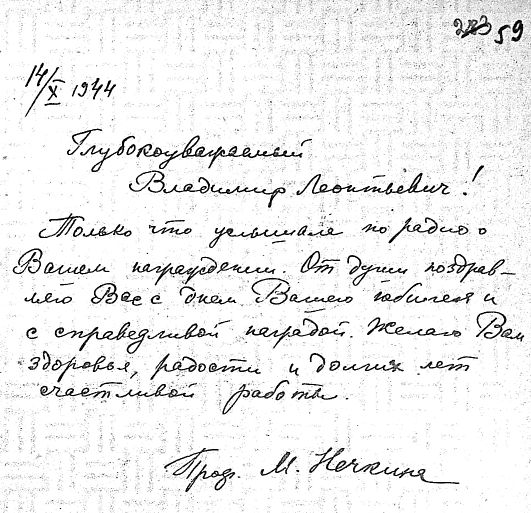 59
14/X 1944
Глубокоуважаемый
Владимир Леонтьевич!
Только что услышала по радио о
Вашем награждении. От души поздрав-
ляю Вас с днем Вашего юбилея и
с справедливой наградой. Желаю Вам
здоровья, радости и долгих лет
счастливой работы.
Проф. М. Нечкина